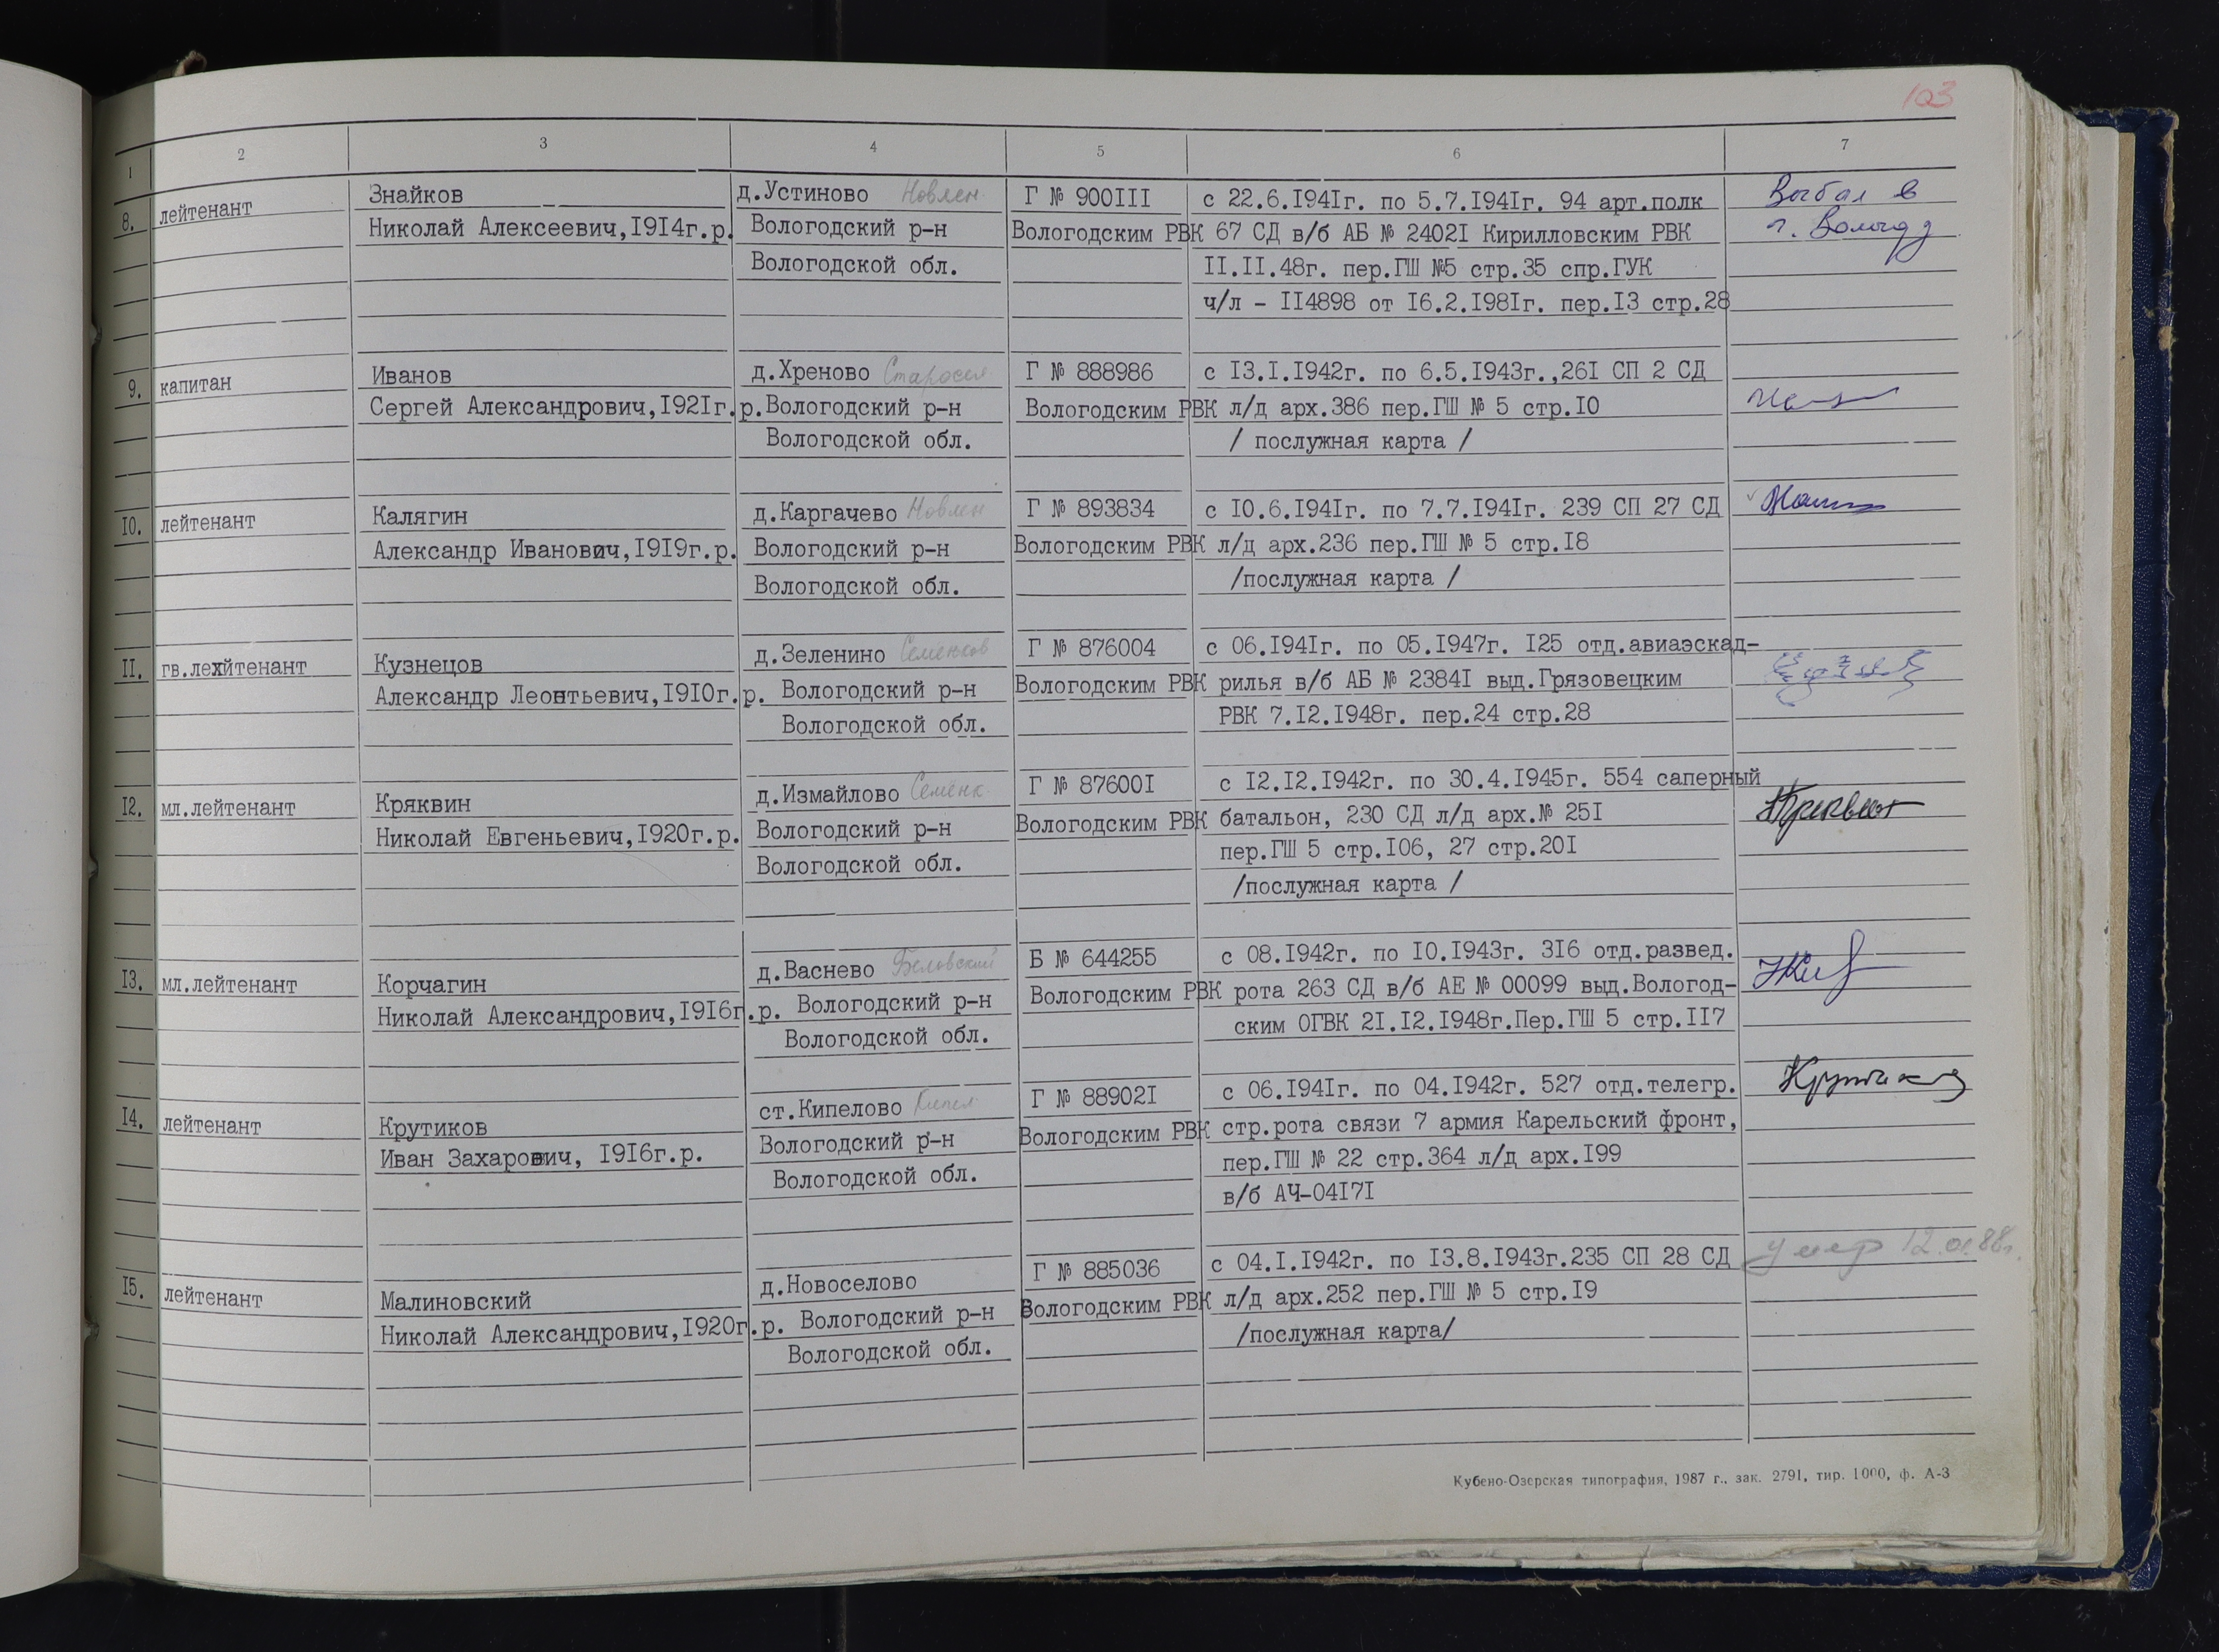 103
1 2 3 4 5 6 7
8. лейтенант
Знайков
Николай Алексеевич,I9I4г.р.
д.Устиново Новлен
Вологодский р-н
Вологодской обл.
Г № 900III
Вологодским РВК
с 22.6.I94Iг. по 5.7.I94Iг. 94 арт.полк
67 СД в/б АБ № 2402I Кирилловским РВК
II.II.48г. пер.ГШ №5 стр.35 спр.ГУК
ч/л - II4898 от I6.2.I98Iг. пер.I3 стр.28
Выбыл в
г. Вологду
9. капитан
Иванов
Сергей Александрович,I92Iг.р.
д.Хреново Старосел
Вологодский р-н
Вологодской обл.
Г № 888986
Вологодским РВК
с I3.I.I942г. по 6.5.I943г.,26I СП 2 СД
л/д арх.386 пер.ГШ № 5 стр.I0
/ послужная карта /
I0. лейтенант
Калягин
Александр Иванович,I9I9г.р.
д.Каргачево Новлен
Вологодский р-н
Вологодской обл.
Г № 893834
Вологодским РВК
с I0.6.I94Iг. по 7.7.I94Iг. 239 СП 27 СД
л/д арх.236 пер.ГШ № 5 стр.I8
/послужная карта /
II. гв.лейтенант
Кузнецов
Александр Леонтьевич,I9I0г.р.
д.Зеленино Семенков
Вологодский р-н
Вологодской обл.
Г № 876004
Вологодским РВК
с 06.I94Iг. по 05.I947г. I25 отд.авиаэскад-
рилья в/б АБ № 2384I выд.Грязовецким
РВК 7.I2.I948г. пер.24 стр.28
I2. мл.лейтенант
Кряквин
Николай Евгеньевич,I920г.р.
д.Измайлово Семенк
Вологодский р-н
Вологодской обл.
Г № 87600I
Вологодским РВК
с I2.I2.I942г. по 30.4.I945г. 554 саперный
батальон, 230 СД л/д арх.№ 25I
пер.ГШ 5 стр.I06, 27 стр.20I
/послужная карта /
I3. мл.лейтенант
Корчагин
Николай Александрович,I9I6г.р.
д.Васнево Беловский
Вологодский р-н
Вологодской обл.
Б № 644255
Вологодским РВК
с 08.I942г. по I0.I943г. 3I6 отд.развед.
рота 263 СД в/б АЕ № 00099 выд.Вологод-
ским ОГВК 2I.I2.I948г.Пер.ГШ 5 стр.II7
I4. лейтенант
Крутиков
Иван Захарович, I9I6г.р.
ст.Кипелово Кипел
Вологодский р-н
Вологодской обл.
Г № 88902I
Вологодским РВК
с 06.I94Iг. по 04.I942г. 527 отд.телегр.
стр.рота связи 7 армия Карельский фронт,
пер.ГШ № 22 стр.364 л/д арх.I99
в/б АЧ-04I7I
I5. лейтенант
Малиновский
Николай Александрович,I920г.р.
д.Новоселово
Вологодский р-н
Вологодской обл.
Г № 885036
Вологодским РВК
с 04.I.I942г. по I3.8.I943г.235 СП 28 СД
л/д арх.252 пер.ГШ № 5 стр.I9
/послужная карта/
умер 12.01.88г.
Кубено-Озерская типография, 1987 г., зак. 2791, тир. 1000, ф. А-3